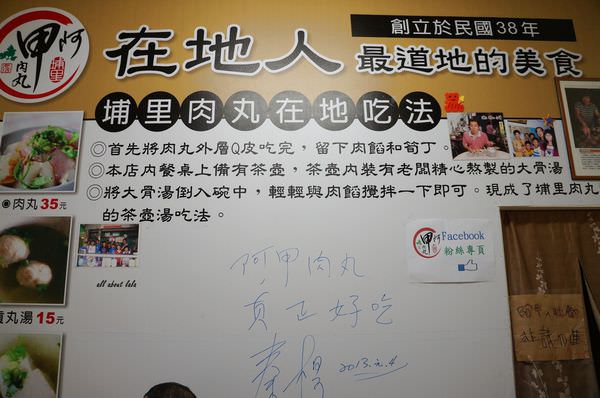 阿甲肉丸
埔里
創立於民國38年
在地人 最道地的美食
埔里肉丸在地吃法
◎首先將肉丸外層Q皮吃完，留下肉餡和筍丁。
◎本店內餐桌上備有茶壺，茶壺內裝有老闆精心熬製的大骨湯
◎將大骨湯倒入碗中，輕輕與肉餡攪拌一下即可。現成了埔里肉丸
的茶壺湯吃法。
◉肉丸35元
貢丸湯15元
all about lulu
阿甲肉丸
Facebook
粉絲專頁
阿甲肉丸
真正好吃